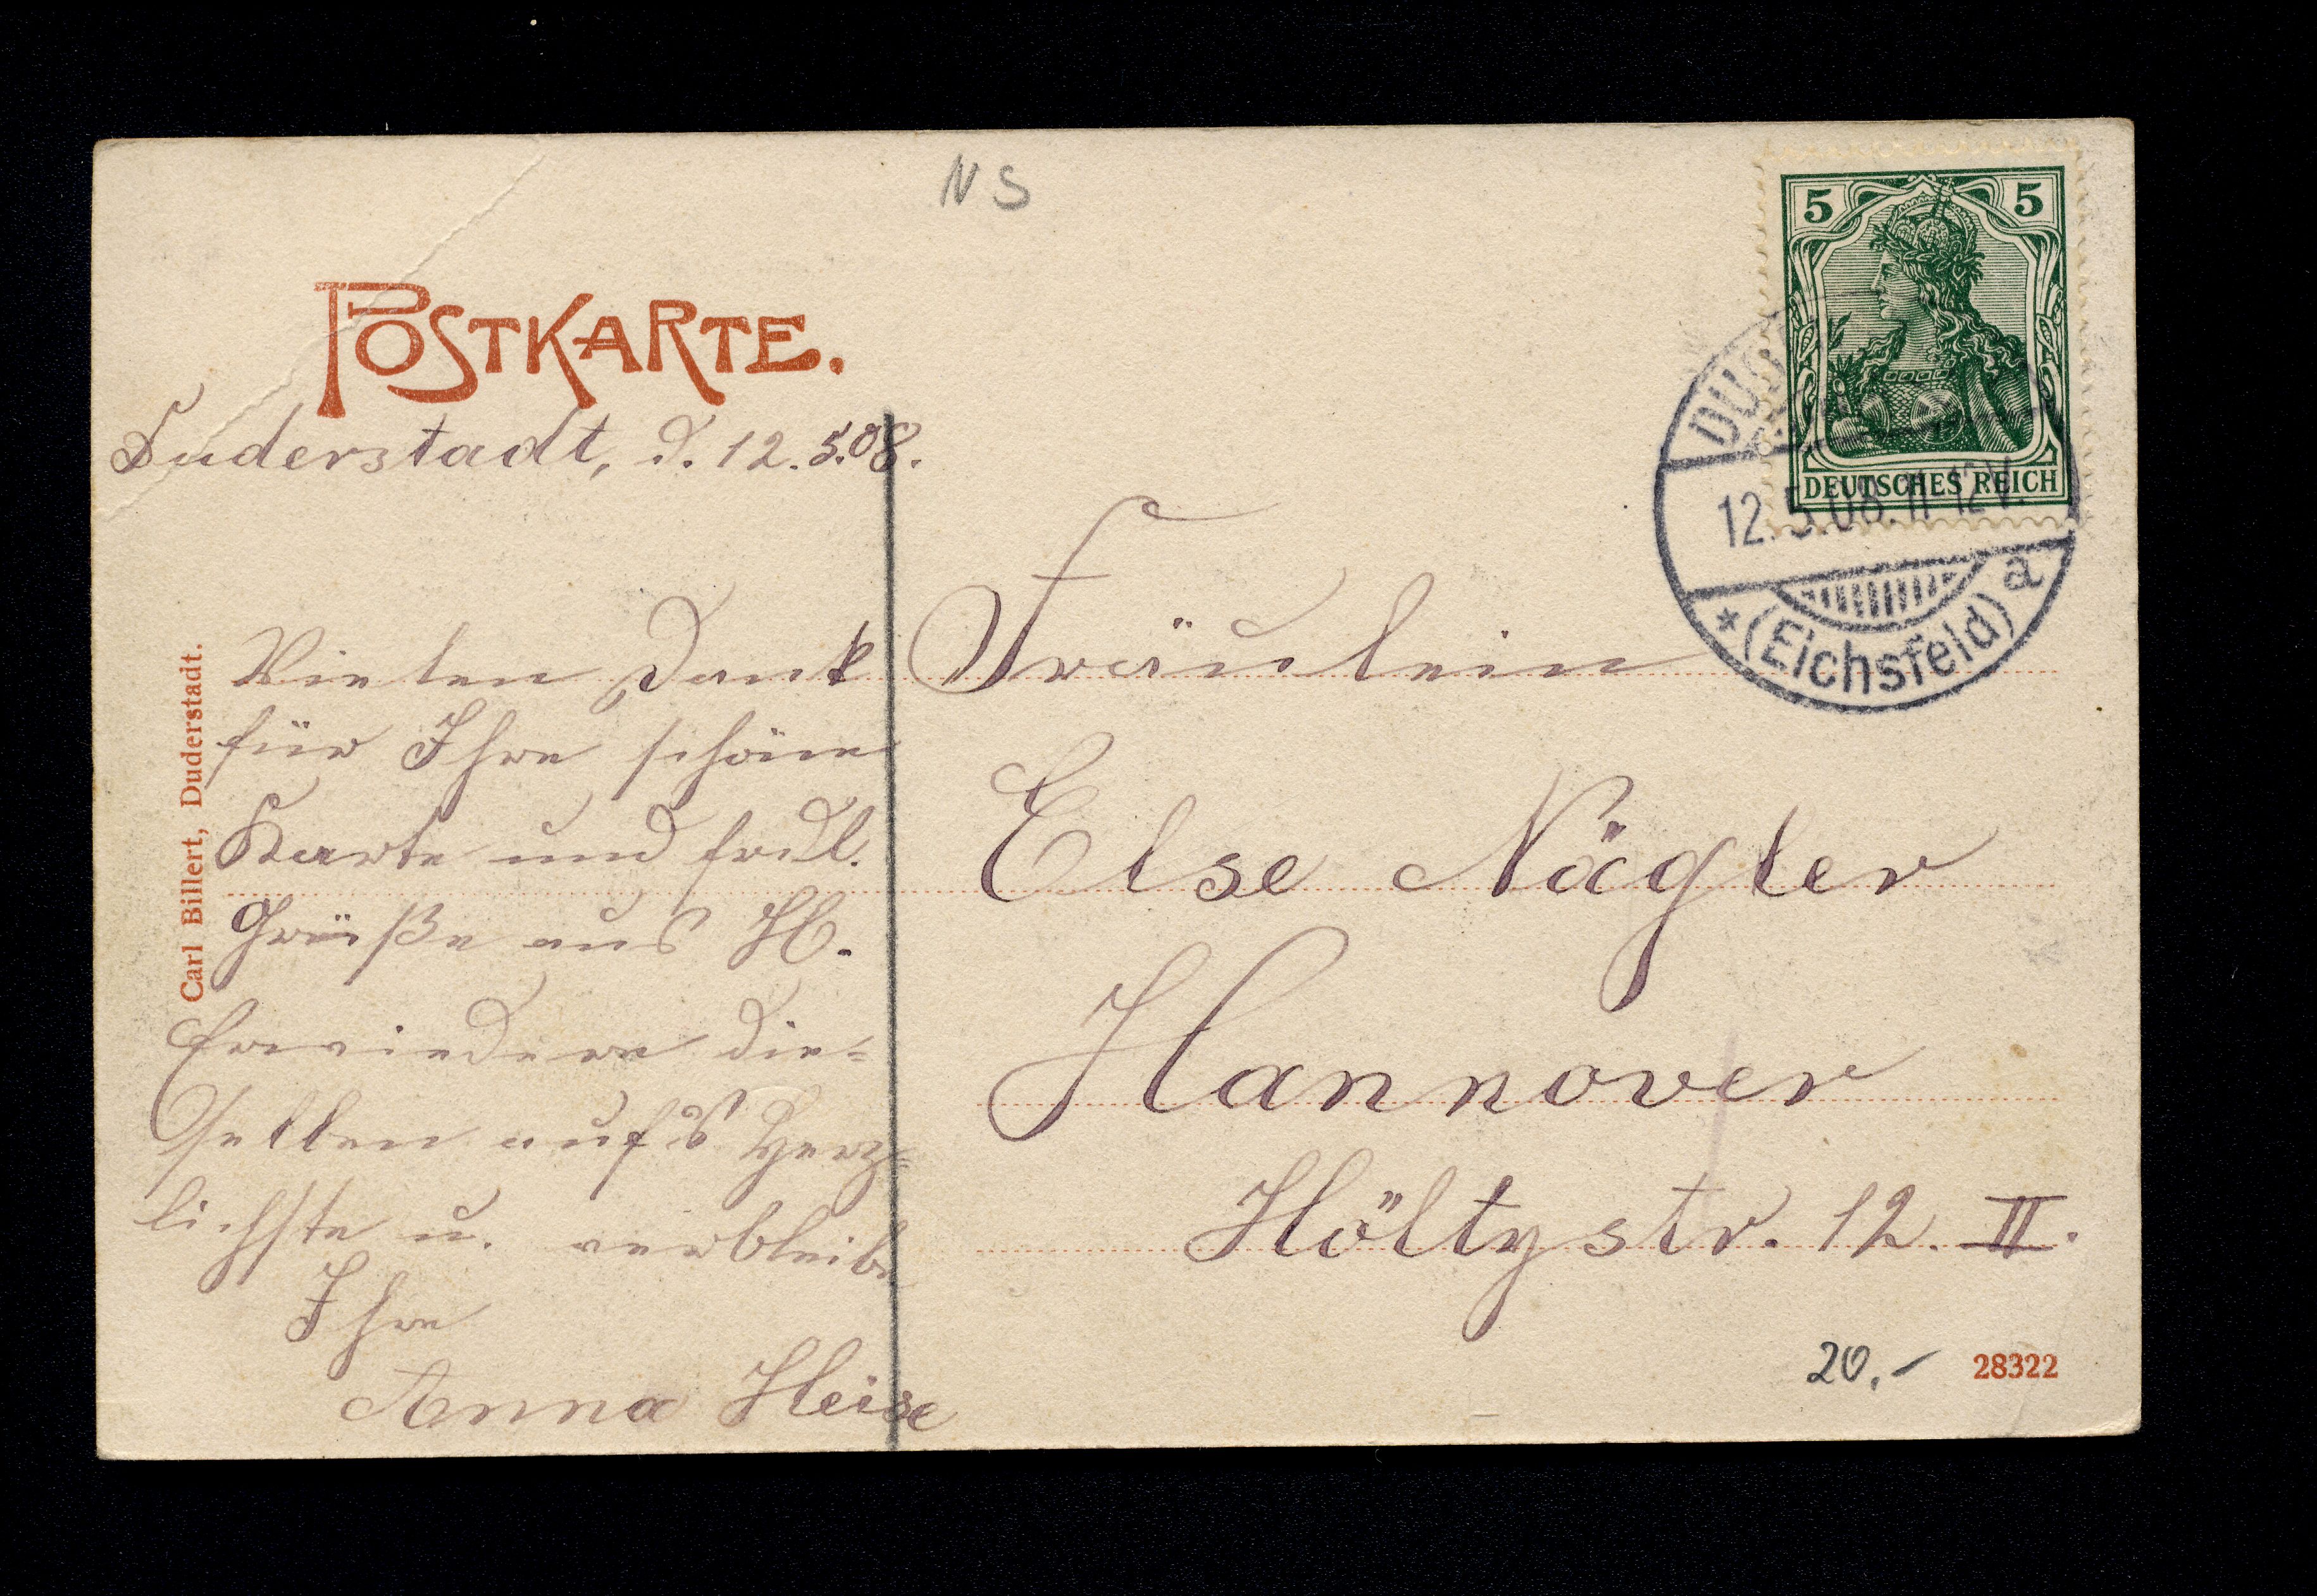 N S
POSTKARTE.
Duderstadt, d. 12. 5.08.
Vielen Dank
für Ihre schöne
Karte und frdl.
Grüße aus H.
Erwiedere die-
selben auf's Herz-
lichste u. verbleibe
Ihre
Anna Heise
Carl Billert, Duderstadt.
5 5
DEUTSCHES REICH
12.5.08.11-12V.
* (Eichsfeld) a
Fräulein
Else Nägler
Hannover
Höltystr. 12. II.
20.-
28322